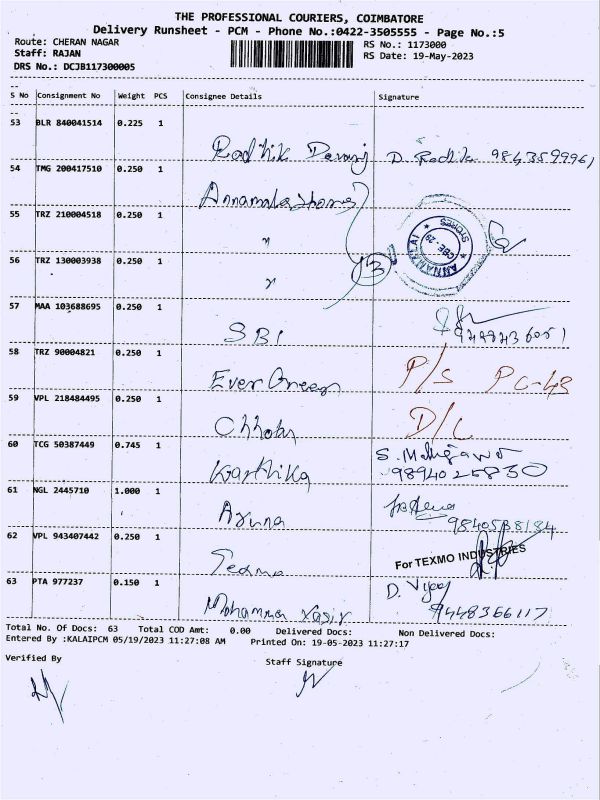 THE PROFESSIONAL COURIERS, COIMBATORE
Delivery Runsheet - PCM - Phone No.:0422-3505555 - Page No.:5
Route: CHERAN NAGAR RS No.: 1173000
Staff: RAJAN RS Date: 19-May-2023
DRS No.: DCJB117300005
S No Consignment No Weight PCS Consignee Details Signature
53 BLR 840041514 0.225 1
Radhik D. Radhika
54 TMG 200417510 0.250 1
55 TRZ 210004518 0.250 1
"
ANNAMALAI STORES CBE-29
56 TRZ 130003938 0.250 1
3
"
57 MAA 103688695 0.250 1
SBI
58 TRZ 90004821 0.250 1
Ever Green P/S PC-43
59 VPL 218484495 0.250 1
D/L
60 TCG 50387449 0.745 1
Karthika 9894025830
61 NGL 2445710 1.000 1
Aruna
62 VPL 943407442 0.250 1
For TEXMO INDUSTRIES
63 PTA 977237 0.150 1
D. Vijay
9448366117
Total No. Of Docs: 63 Total COD Amt: 0.00 Delivered Docs: Non Delivered Docs:
Entered By :KALAIPCM 05/19/2023 11:27:08 AM Printed On: 19-05-2023 11:27:17
Verified By Staff Signature